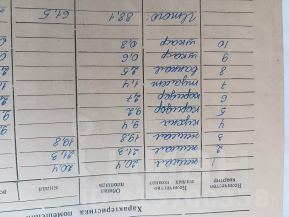 Характеристика помещений
Количество квартир
Количество жилых комнат
Общая площадь
жилая
1 жилая 20,4 20,4
2 жилая 21,3 21,3
3 жилая 19,8 19,8
4 кухня 9,4
5 коридор 9,2
6 коридор 2,7
7 туалет 1,4
8 ванная 2,5
9 шкаф 0,6
10 шкаф 0,8
Итого 88,1 61,5